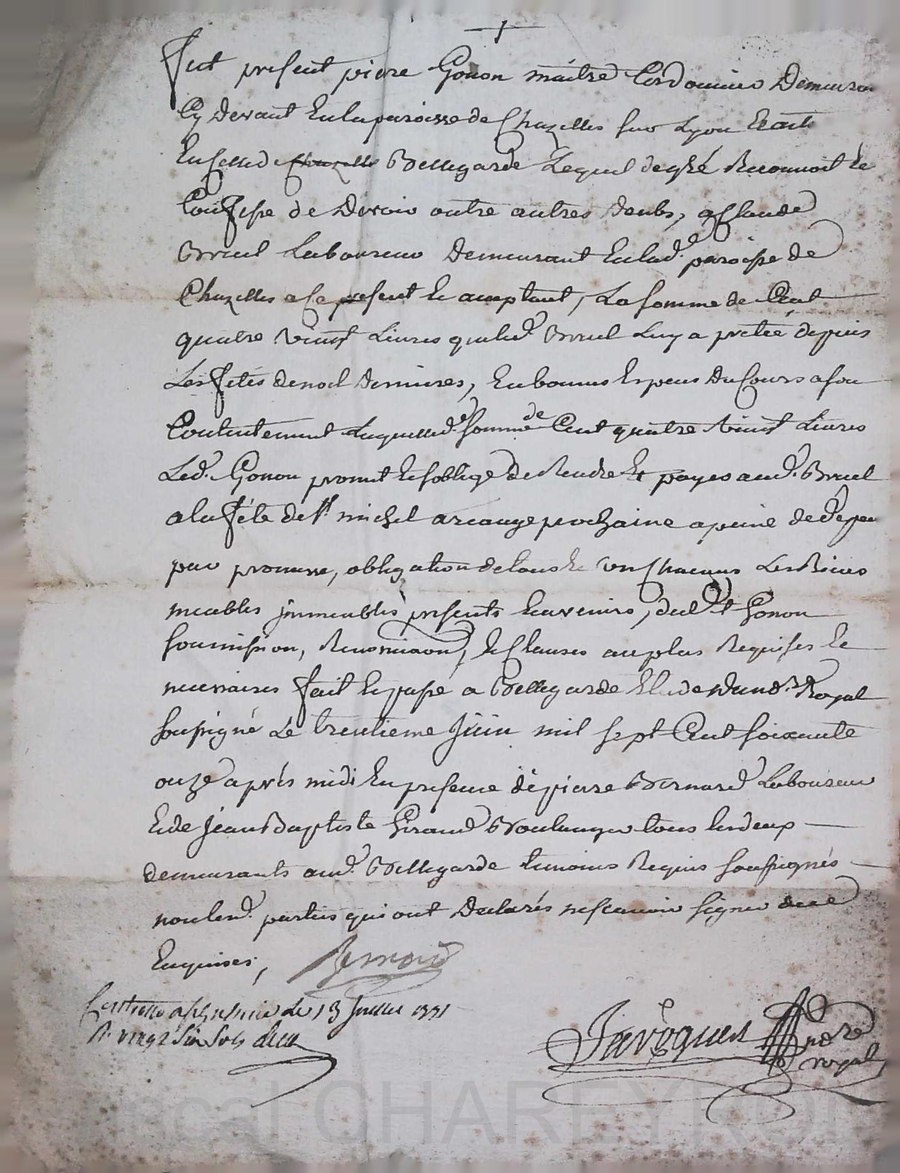 fut present pierre Gonon maitre Cordonnier Demeurant
Cy Devant En la paroisse de Chazelles sur Lyon Et a
En celle de Chazelle Bellegarde Lequel de gré Reconnoit Et
Confesse de Devoir outre autres deubs, a Claude
Breul Laboureur Demeurant En lad.e paroisse de
Chazelles a ce present Et acceptant, La somme de Cent
quatre Vingt Livres que led. Breul Luy a pretée depuis
Les fetes de noel Dernieres, En bonnes Especes Du Cours a son
Contentement Laquelle d.e somme de Cent quatre Vingt Livres
Led. Gonon promet Et s'oblige de Rendre Et payer aud. Breul
a la fete de S.t michel arcange prochaine a peine de depens
par promesse, obligation de tous Et un Chacuns Les Biens
meubles immeubles presents Et avenirs, dud.t Gonon
soumission, Renonciaon, Et Clauses au plus Requises Et
necessaires fait Et passé a Bellegarde Etude du no.re Royal
soussigné Le trentieme Juin mil sept Cent soixante
onze après midi En presence de pierre Bernard Laboureur
Et de Jean Baptiste Giraud Boulanger tous Les deux
demeurants aud. Bellegarde temoins Requis soussignés
non Lesd. parties qui ont Declarés ne scavoir signer de ce
Enquises,
Bernard
Le 13 Juillet 1771
R. vingt six sols
Javogues
no.re
royal
Pascal CHAREYRON